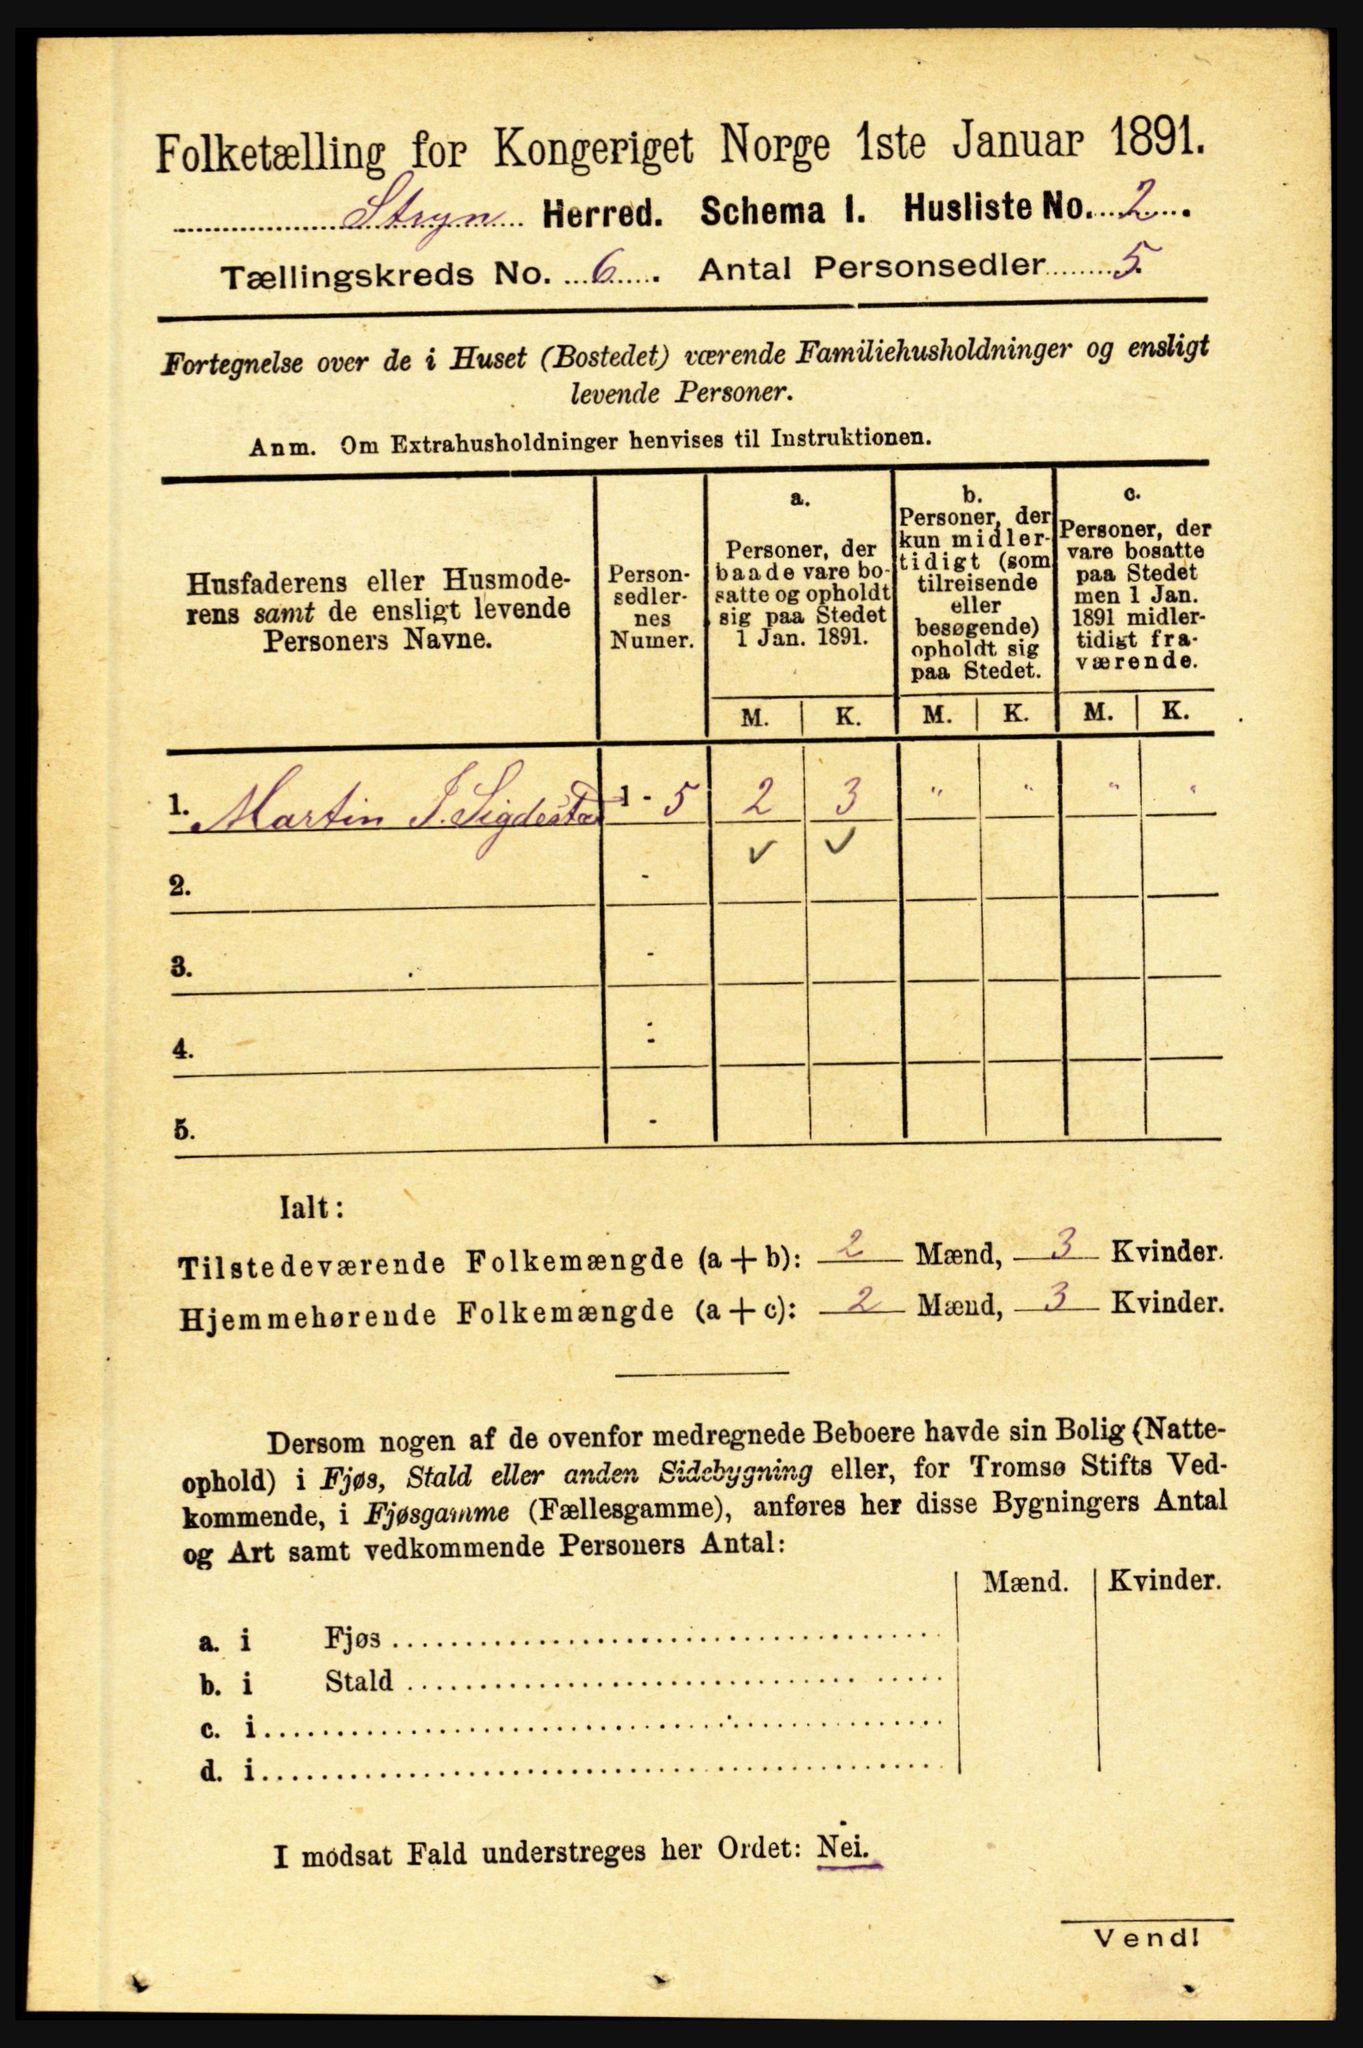 Folketælling for Kongeriget Norge 1ste Januar 1891.
Stryn Herred. Schema I. Husliste No. 2.
Tællingskreds No. 6. Antal Personsedler 5.
Fortegnelse over de i Huset (Bostedet) værende Familiehusholdninger og ensligt
levende Personer.
Anm. Om Extrahusholdninger henvises til Instruktionen.
Husfaderens eller Husmode-
rens samt de ensligt levende
Personers Navne.
Person-
sedler-
nes
Numer.
a.
Personer, der
baade vare bo-
satte og opholdt
sig paa Stedet
1 Jan. 1891.
b.
Personer, der
kun midler-
tidigt (som
tilreisende
eller
besøgende)
opholdt sig
paa Stedet.
c.
Personer, der
vare bosatte
paa Stedet
men 1 Jan.
1891 midler-
tidigt fra-
værende.
M. K. M. K. M. K.
1. Martin J. Sigdestad 1 - 5 2 3 " " " "
✓ ✓
2. -
3. -
4. -
5. -
Ialt:
Tilstedeværende Folkemængde (a + b): 2 Mænd, 3 Kvinder.
Hjemmehørende Folkemængde (a + c): 2 Mænd, 3 Kvinder.
Dersom nogen af de ovenfor medregnede Beboere havde sin Bolig (Natte-
ophold) i Fjøs, Stald eller anden Sidebygning eller, for Tromsø Stifts Ved-
kommende, i Fjøsgamme (Fællesgamme), anføres her disse Bygningers Antal
og Art samt vedkommende Personers Antal:
Mænd. Kvinder.
a. i Fjøs
b. i Stald
c. i
d. i
I modsat Fald understreges her Ordet: Nei.
Vend!